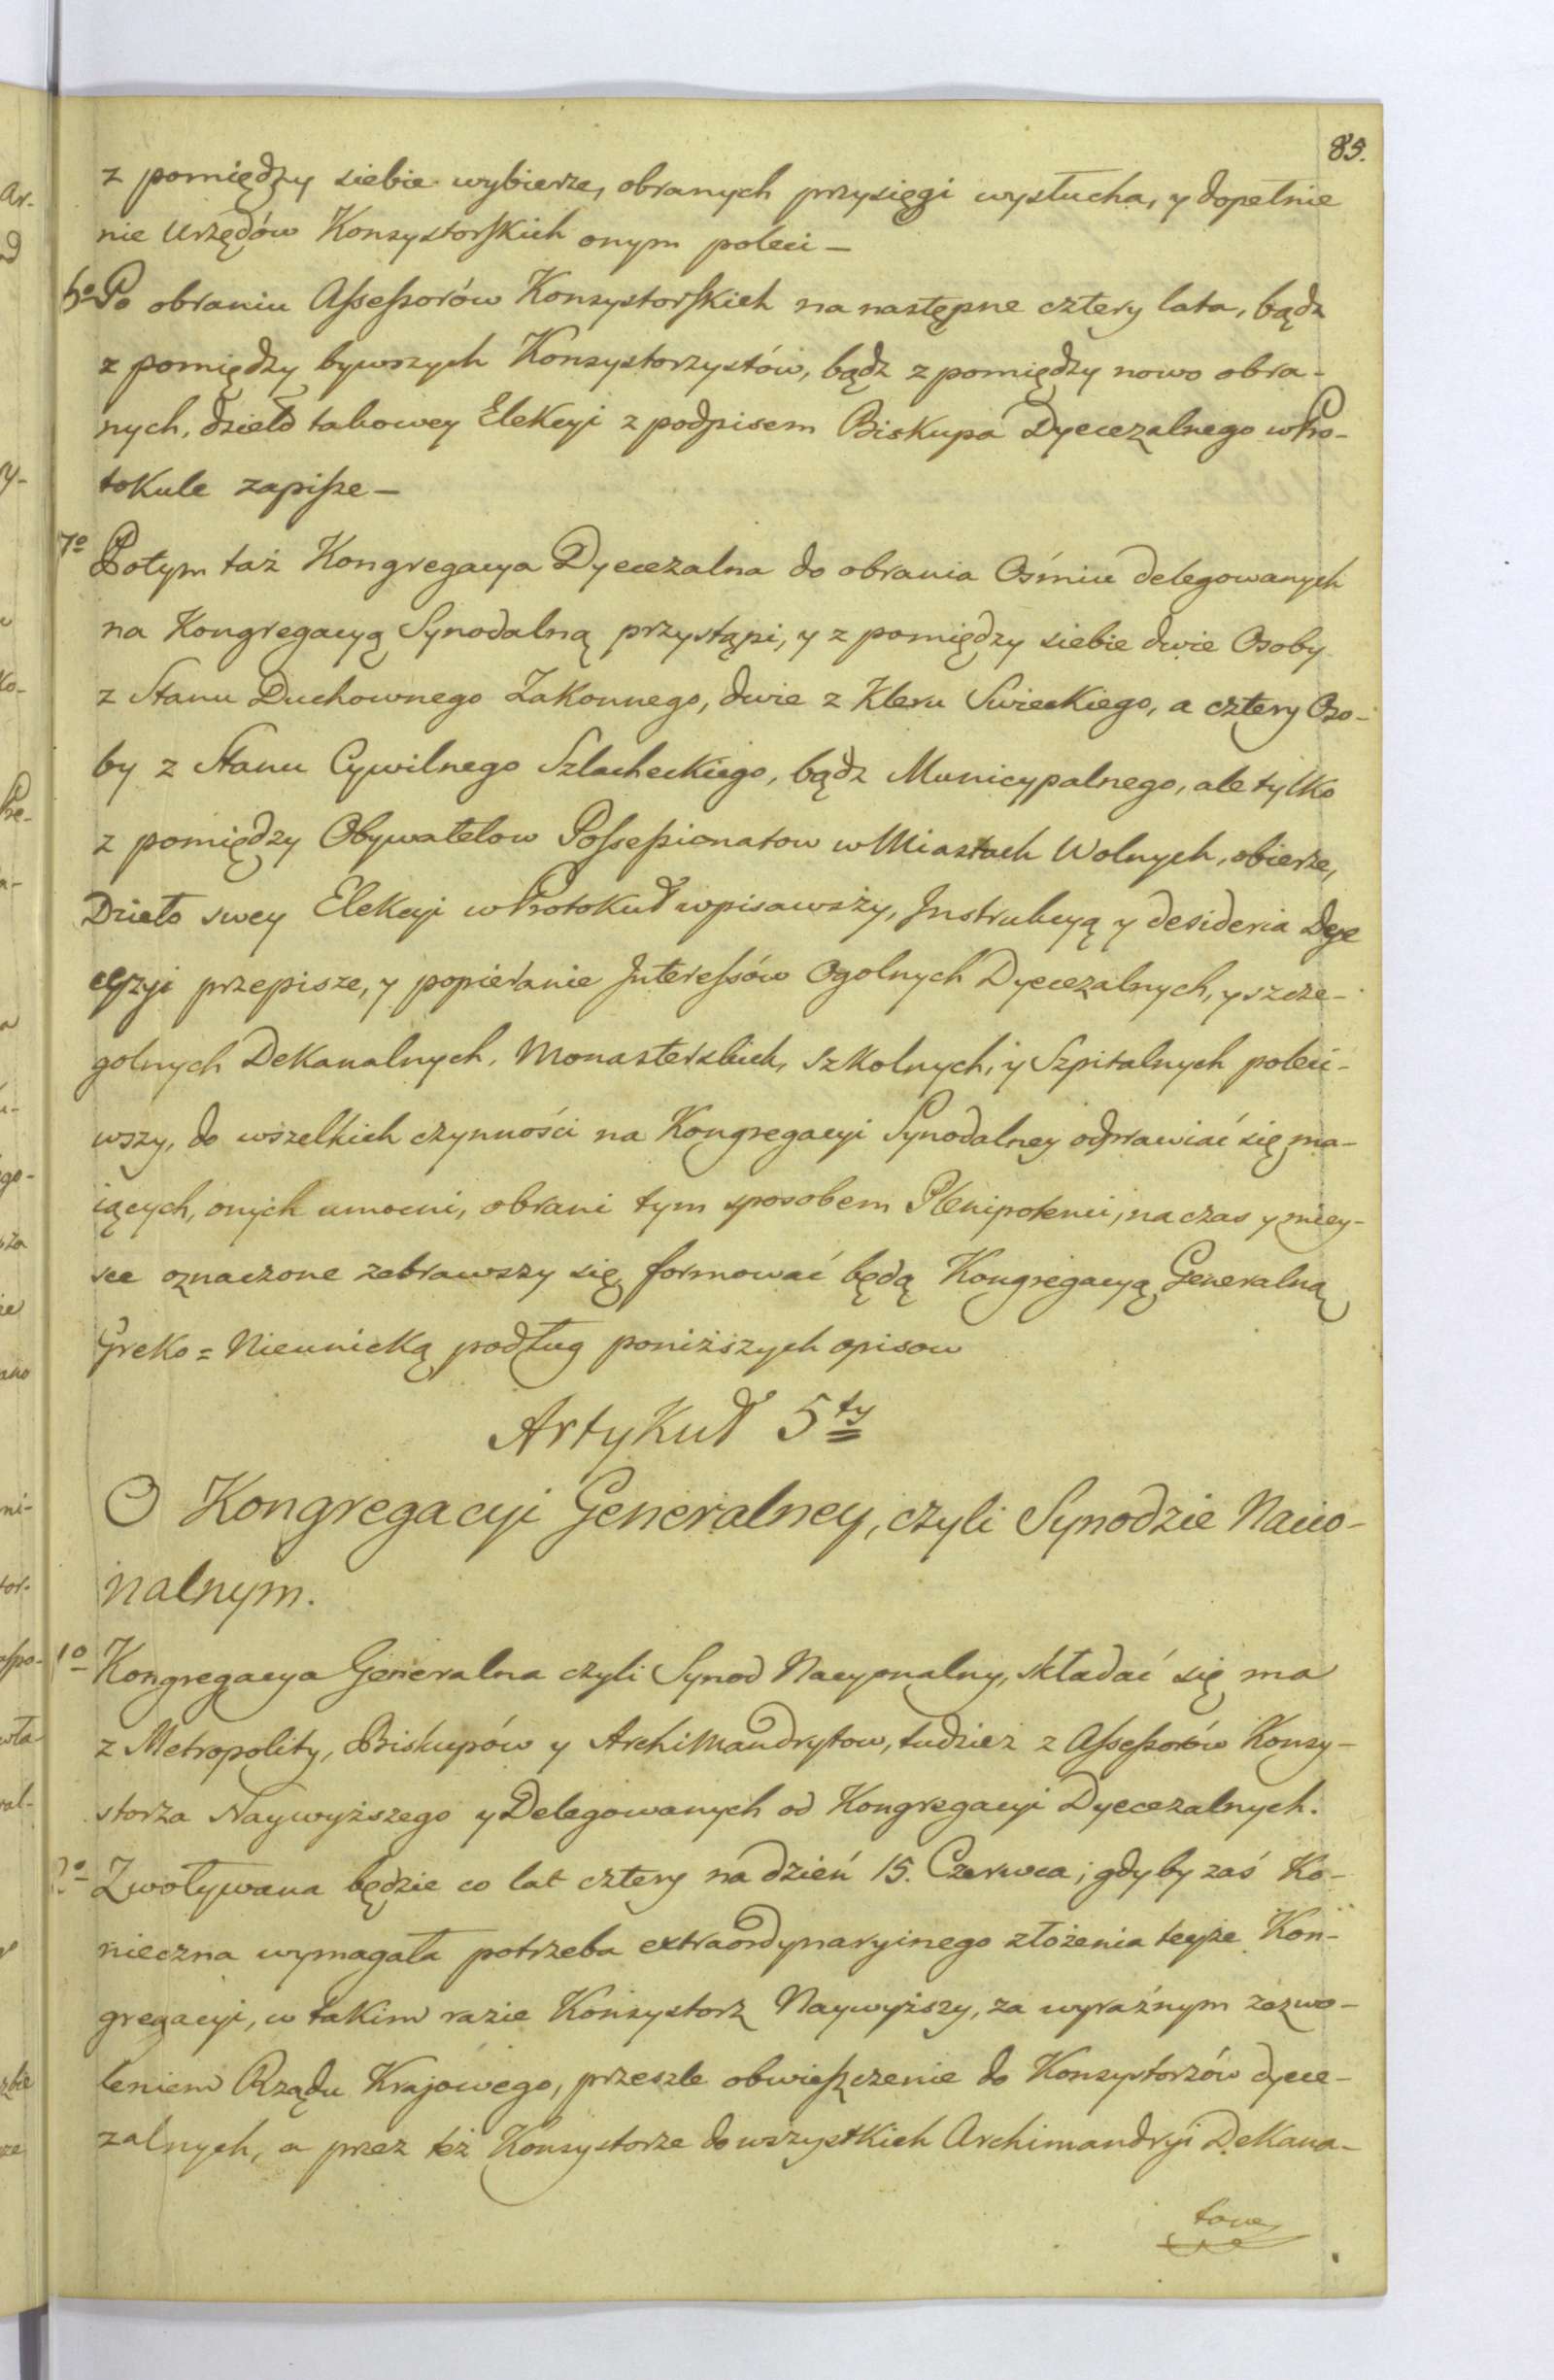 85.
z pomiędzy siebie wybierze, obranych przysięgi wysłucha, y dopełnie
nie Urzędów Konsystorskich onym poleci —
6º Po obraniu Assessorów Konsystorskich na następne cztery lata, bądz
z pomiędzy bywszych Konsystorzystów, bądz z pomiędzy nowo obra-
nych, dzieło takowey Elekcyi z podpisem Biskupa Dyecezalnego w Pro-
tokule zapisze —
7º Potym taż Kongregacya Dyecezalna do obrania Ośmiu delegowanych
na Kongregacyą Synodalną przystąpi, y z pomiędzy siebie dwie Osoby
z Stanu Duchownego Zakonnego, dwie z Kleru Swieckiego, a cztery Oso-
by z Stanu Cywilnego Szlacheckiego, bądz Municypalnego, ale tylko
z pomiędzy Obywatelow Possessionatow w Miastach Wolnych, obierze,
Dzieło swey Elekcyi w Protokuł wpisawszy, Instrukcyą y desideria Dye
cezyi przepisze, y popieranie Interessów Ogolnych Dyecezalnych, y szcze-
golnych Dekanalnych, Monasterskich, Szkolnych, y Szpitalnych poleci-
wszy, do wszelkich czynności na Kongregacyi Synodalney odprawiać się ma-
iących, onych umocni, obrani tym sposobem Plenipotenci, na czas y miey-
sce oznaczone zebrawszy się formować będą Kongregacyą Generalną
Greko = Nieunicką podług poniższych opisow
Artykuł 5ty
O Kongregacyi Generalney, czyli Synodzie Nacio-
nalnym.
1º Kongregacya Generalna czyli Synod Nacyonalny, składać się ma
z Metropolity, Biskupów y Archimandrytow, tudzież z Assessorów Konsy-
storza Naywyższego y Delegowanych od Kongregacyi Dyecezalnych.
2º Zwoływana będzie co lat cztery na dzień 15. Czerwca; gdyby zaś Ko-
nieczna wymagała potrzeba extraordynaryinego złożenia teyże Kon-
gregacyi, w takim razie Konsystorz Naywyższy, za wyraźnym zezwo-
leniem Rządu Krajowego, przeszle obwieszczenie do Konsystorzów dyece-
zalnych, a przez też Konsystorze do wszystkich Archimandryi Dekana-